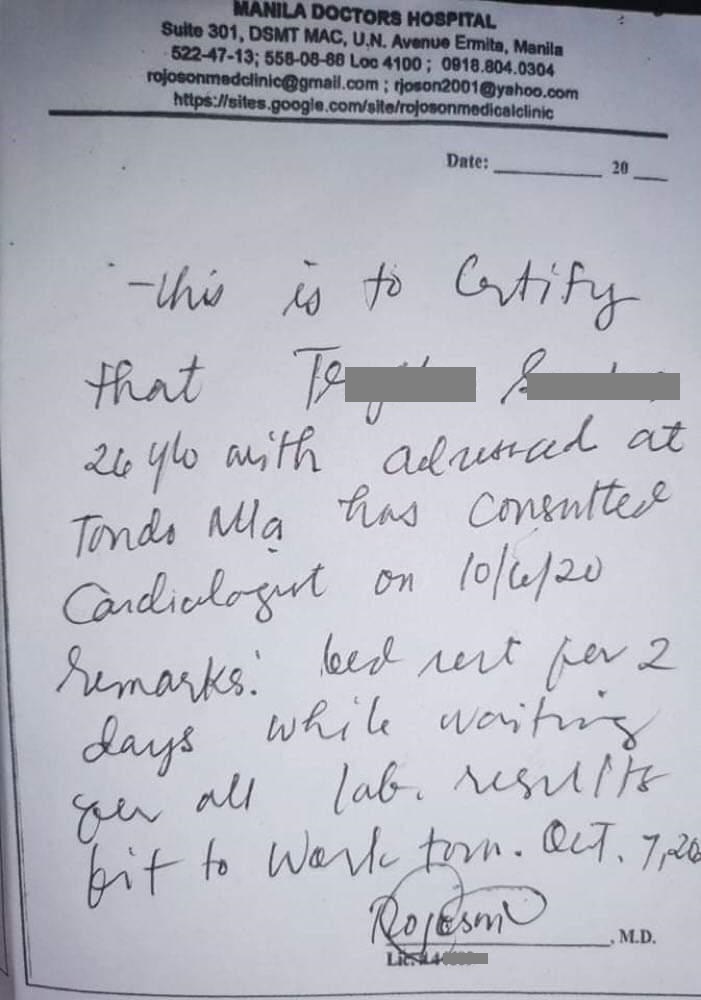 MANILA DOCTORS HOSPITAL
Suite 301, DSMT MAC, U.N. Avenue Ermita, Manila
522-47-13; 558-08-88 Loc 4100 ; 0918.804.0304
rojosonmedclinic@gmail.com ; rjoson2001@yahoo.com
https://sites.google.com/site/rojosonmedicalclinic
Date: 20
This is to Certify
that
26 y/o with at
Tondo Mla has consulted
Cardiologist on 10/6/20
Remarks: bed rest for 2
days while waiting
for all lab. results
fit to work tom. Oct. 7, 20
Rojoson
, M.D.
Lic.